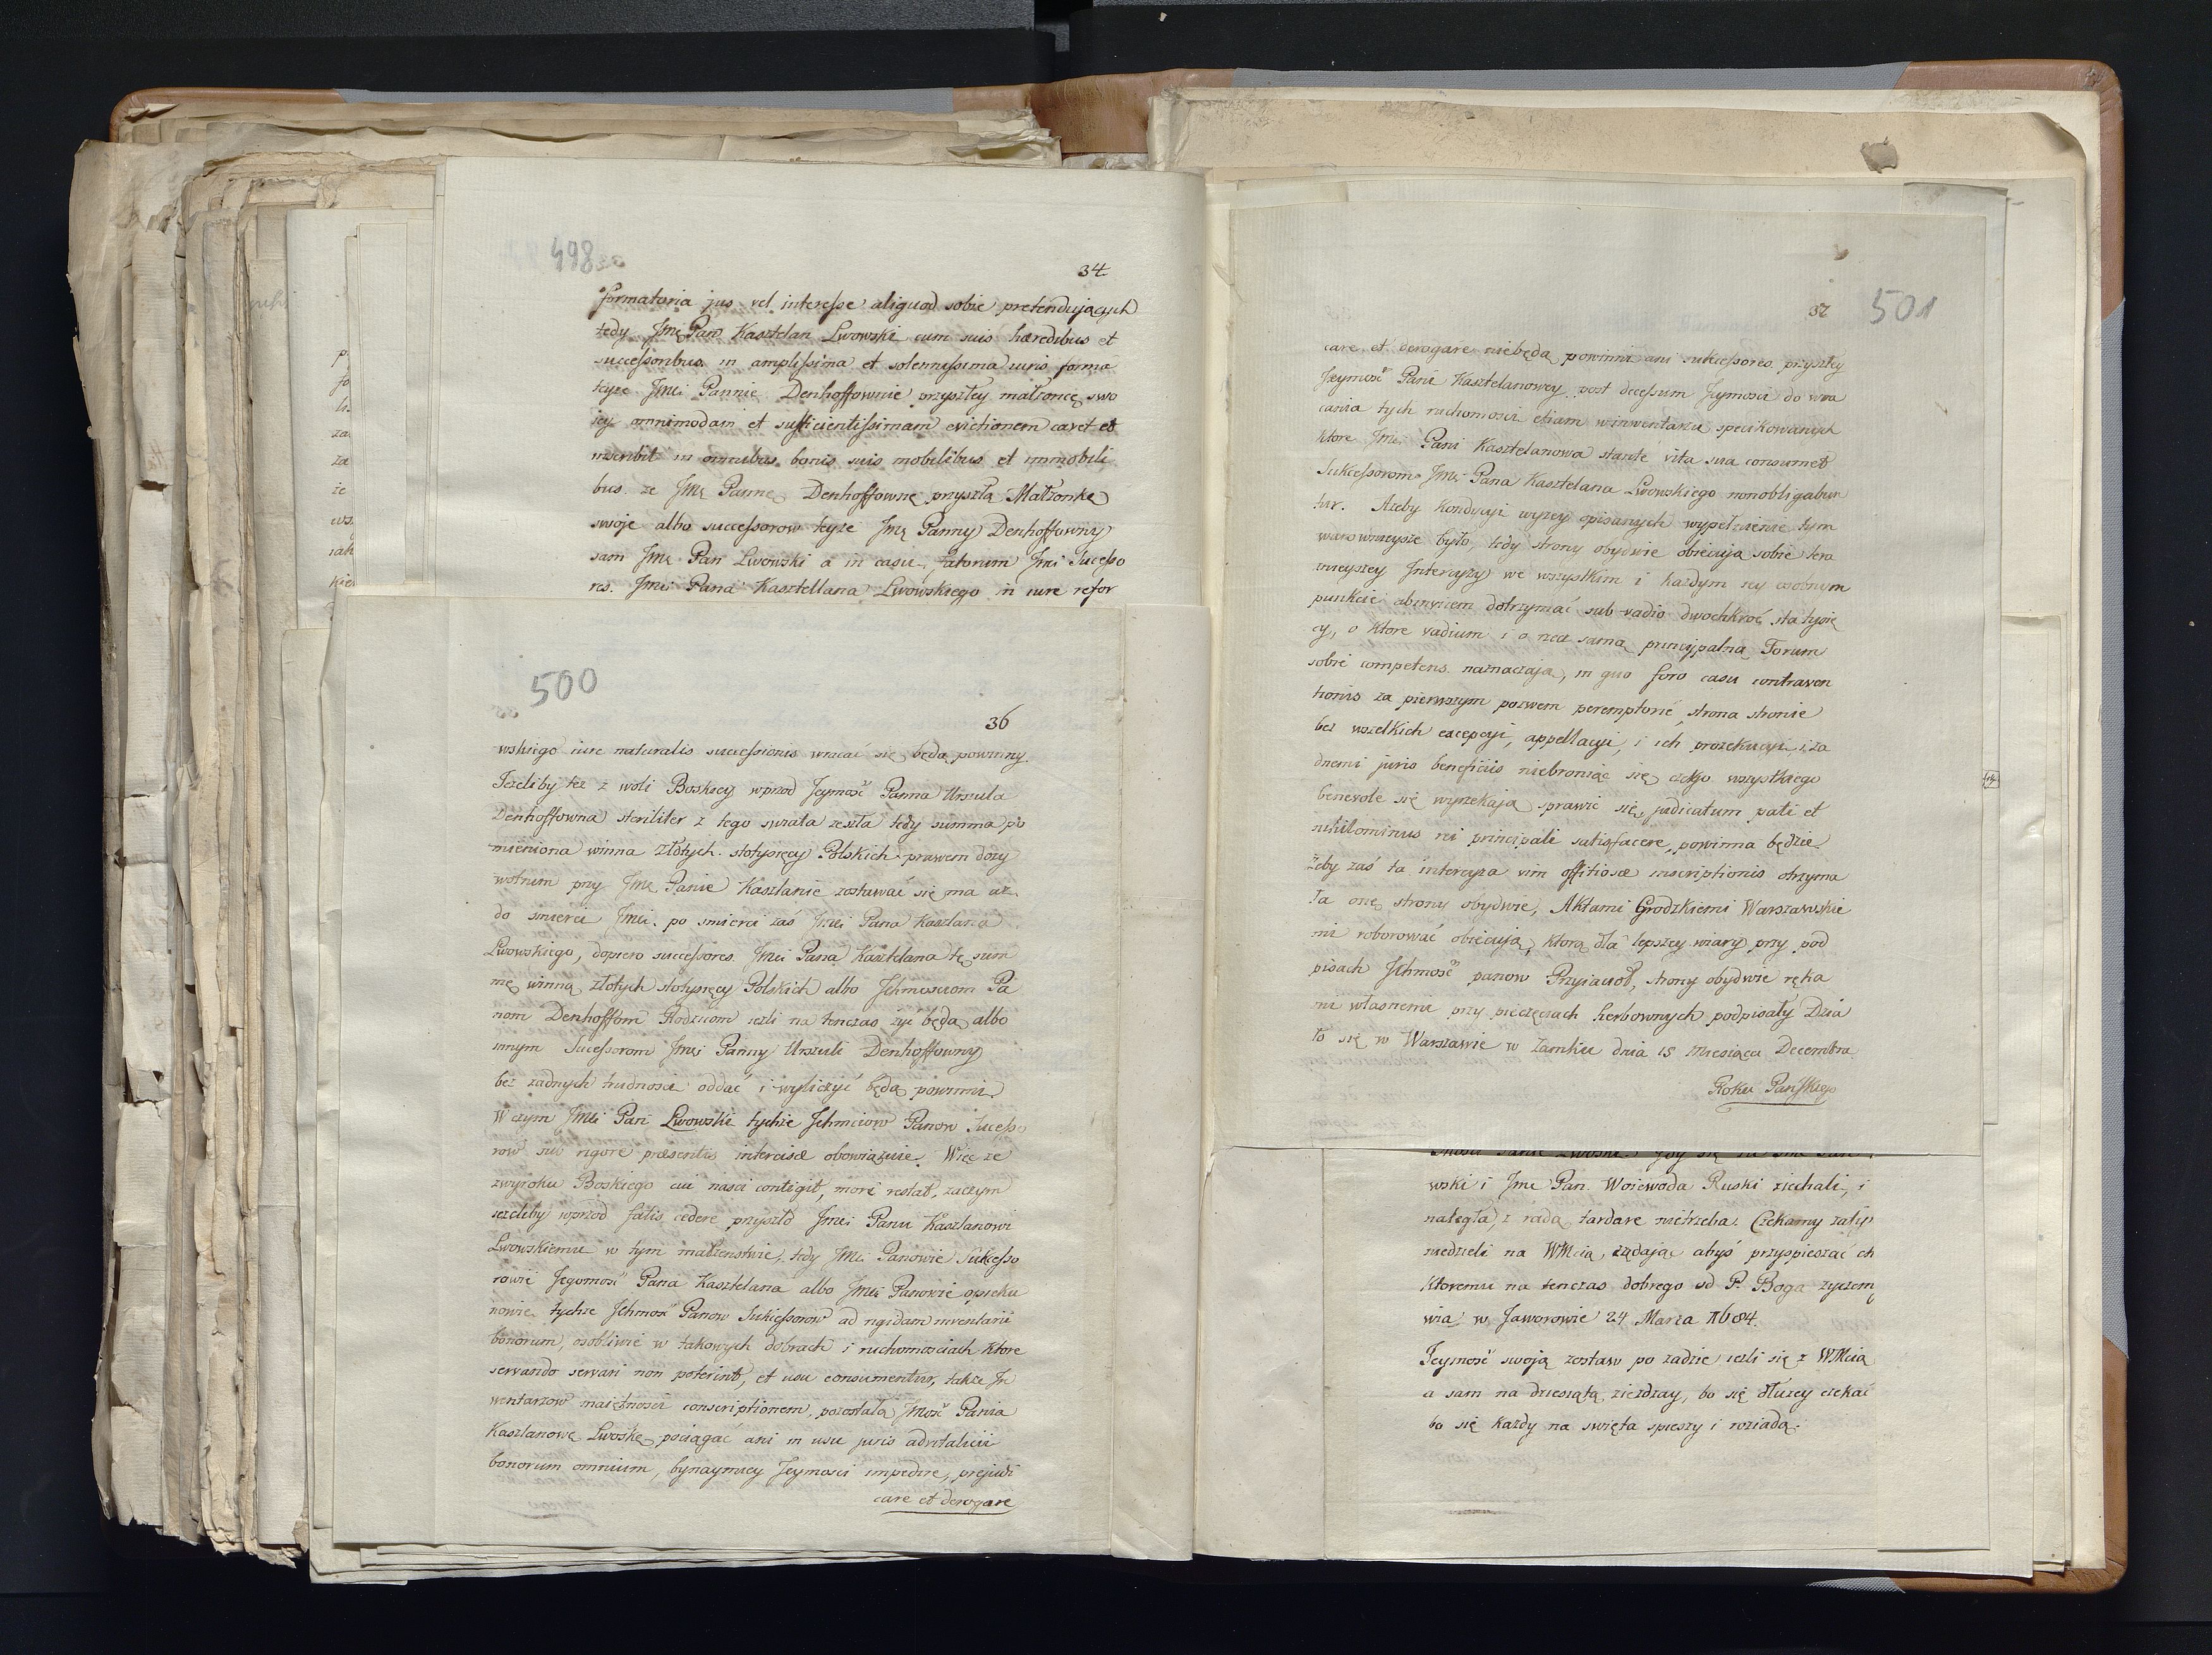 498
34
formatoria jus vel interesse aliquod sobie pretendujących
tedy Jmę Pan Kasztelan Lwowski cum suis hæredibus et
successoribus in amplissima et solennissima iuris forma
teyze Jmci Pannie Denhoffownie przyszłey małżonce swo
iey omnimodam et sufficientissimam evictionem cavet et
inscribit in omnibus bonis suis mobilibus et immobili
bus ze Jmę Pannę Denhoffownę przyszłą Małżonkę
swoje albo successorow teyze Jmę Panny Denhoffowny
sam Jmę Pan Lwowski a in casu fatorum Jmci Sucesso
res Jmci Pana Kasztellana Lwowskiego in iure refor
500
36
wskiego iure naturalis successionis wracać się będą powinny.
Jezeliby tez z woli Boskiey wprzod Jeymość Panna Urszula
Denhoffowna steriliter z tego swiata zeszła tedy summa po
mieniona winna złotych stotysięcy Polskich prawem dozy
wotnim przy Jmę Panie Kasztlanie zostawać się ma az
do smierci Jmci. po smierci zaś Jmci Pana Kasztlana
Lwowskiego, dopiero successores Jmci Pana Kasztelana tę sum
mę winną złotych stotysięcy Polskich albo Jchmosciom Pa
nom Denhoffom Rodzicom iezli na tenczas żyć będą albo
innym Sucessorom Jmci Panny Urszuli Denhoffowny
bez zadnych trudnosci oddać i wyliczyć będą powinni
W czym Jmci Pan Lwowski tychze Jchmciow Panow Sucesso
row sub rigore præsentis intercisæ obowiązuie. Więc ze
zwyroku Boskiego cui nasci contigit, mori restat, zaczym
iezeliby wprzod fatis cedere przyszło Jmci Panu Kasztlanowi
Lwowskiemu w tym małzenstwie, tedy Jmci Panowie Sukcesso
rowie Jegomość Pana Kasztelana albo Jmci Panowie opieku
nowie tychze Jchmość Panow Sukcessorow ad rigidam inventarii
bonorum, osobliwie w takowych dobrach i ruchomosciach ktore
servando servari non poterint, et usu consumentur, takze In
wentarzow maiętnosci conscriptionem, pozostałą Jmość Panią
Kasztlanowę Lwoskę pociągać ani in usu juris advitalicii
bonorum omnium, bynaymiey Jeymosci impedire, prejudi
care et derogare
37
501
care et derogare niebędą powinni ani sukcessores przyszłey
Jeymość Pani Kasztelanowey post decessum Jeymosci do wra
cania tych ruchomosci etiam winwentarzu specikowanych
ktore Jmci Pani Kasztelanowa stante vita sua consumet
Sukcessorom Jmci Pana Kasztelana Lwowskiego nonobligabun
tur. Azeby Kondycyi wyzey opisanych wypełnienie tym
warownieysze było, tedy strony obydwie obiecują sobie tera
znieyszey Intercyzy we wszystkim i kazdym iey osobnym
punkcie dotrzymać sub vadio dwochkroć sta tysię
cy, o ktore vadium i o rzecz samą pryncypalną Forum
sobie competens naznaczają, in quo foro casu contraven
tionis za pierwszym pozwem peremptorie, strona stronie
bez wszelkich excepcyi, appellacyi, i ich prozekucyi i za
dnemi juris beneficiis niebroniąc się czego wszystkiego
benevole się wyrzekają sprawić się, judicatum pati et
nihilominus rei principali satisfacere, powinna będzie
żeby zaś ta intercyza vim offitiosæ inscriptionis otrzyma
ła onę strony obydwie, Aktami Grodzkiemi Warszawskie
mi roborować obiecują, ktorą dla lepszey wiary przy pod
pisach Jchmość panow Przyiacioł, strony obydwie ręka
mi własnemi przy pieczęciach herbownych podpisały Dzia
ło się w Warszawie w Zamku dnia 15 miesiąca Decembra
Roku Pańskiego
wski i Jmc Pan Woiewoda Ruski ziechali, i
naległa, z radą tardare nietrzeba. Czekamy zatym
niedzieli na WMcią, ządając abyś przyspieszać ch
ktoremu na tenczas dobrego od P. Boga zyczem
wia w Jaworowie 24 Marca 1684.
Jeymość swoją zostaw po zadzie iezli się z WMcią
a sam na dziesiątą zieżdzay, bo się dłuzey czekać
bo się kazdy na swięta spieszy i roziada.